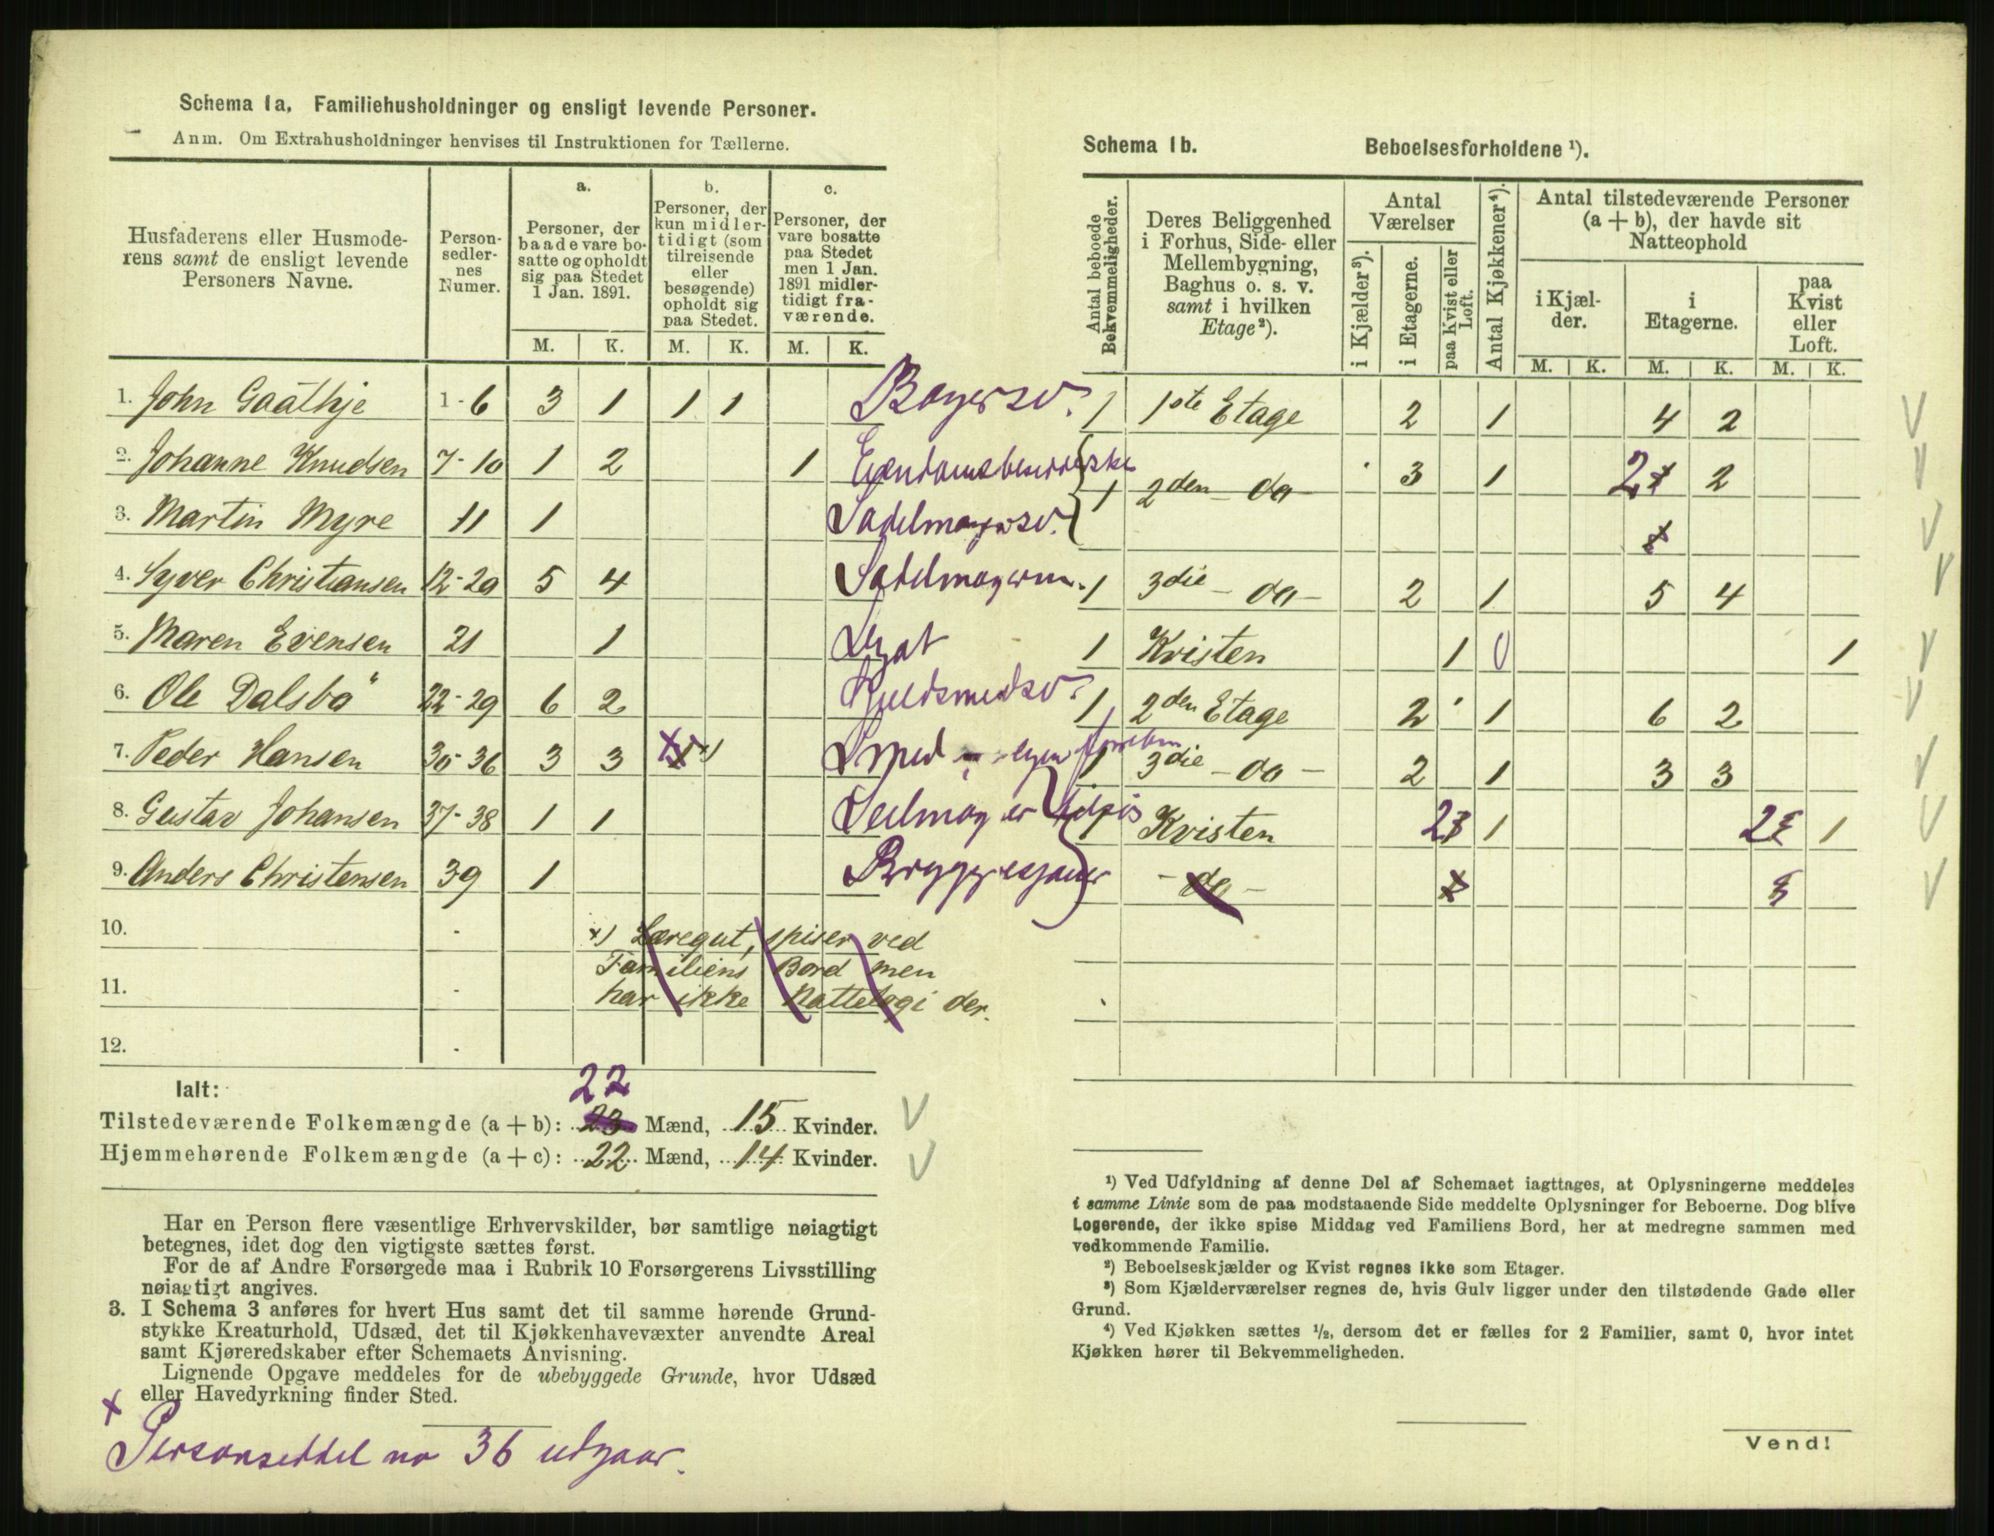 Schema 1a. Familiehusholdninger og ensligt levende Personer.
Anm. Om Extrahusholdninger henvises til Instruktionen for Tællerne.
Husfaderens eller Husmoderens samt de ensligt levende Personers Navne.
Person-sedler-nes Numer.
a. Personer, der baade vare bosatte og opholdt sig paa Stedet 1 Jan. 1891.
b. Personer, der kun midlertidigt (som tilreisende eller besøgende) opholdt sig paa Stedet.
c. Personer, der vare bosatte paa Stedet men 1 Jan. 1891 midlertidigt fraværende.
M. K. M. K. M. K.
1. John Gaathje 1-6 3 1 1 1 Bøyersv.
2. Johanne Knudsen 7-10 1 2 1
3. Martin Myre 11 1 Sadelmagersv.
4. Syver Christiansen 12-20 5 4 Sadelmagerm.
5. Maren Evensen 21 1 Legat
6. Ole Dalsbö 22-29 6 2 Guldsmedsv.
7. Peder Hansen 30-36 3 3 x 1 x) Smed
8. Gustav Johansen 37-38 1 1 Seilmager
9. Anders Christensen 39 1 Bryggesjauer
10. x) Læregut, spiser ved
Familiens Bord men
11. har ikke Nattelogi der.
12.
Ialt:
22
Tilstedeværende Folkemængde (a + b): 23 Mænd, 15 Kvinder.
Hjemmehørende Folkemængde (a + c): 22 Mænd, 14 Kvinder.
Har en Person flere væsentlige Erhvervskilder, bør samtlige nøiagtigt
betegnes, idet dog den vigtigste sættes først.
For de af Andre Forsørgede maa i Rubrik 10 Forsørgerens Livsstilling
nøiagtigt angives.
3. I Schema 3 anføres for hvert Hus samt det til samme hørende Grund-
stykke Kreaturhold, Udsæd, det til Kjøkkenhavevæxter anvendte Areal
samt Kjøreredskaber efter Schemaets Anvisning.
Lignende Opgave meddeles for de ubebyggede Grunde, hvor Udsæd
eller Havedyrkning finder Sted.
x
Personseddel no 36 udgaar.
Schema 1b. Beboelsesforholdene ¹).
Antal beboede Bekvemmeligheder.
Deres Beliggenhed i Forhus, Side- eller Mellembygning, Baghus o. s. v. samt i hvilken Etage²).
Antal Værelser
i Kjælder³).
i Etagerne.
paa Kvist eller Loft.
Antal Kjøkkener⁴).
Antal tilstedeværende Personer (a + b), der havde sit Natteophold
i Kjælder.
i Etagerne.
paa Kvist eller Loft.
M. K. M. K. M. K.
1 1ste Etage 2 1 4 2
1 2den - do - 3 1 2 2
1 3die - do - 2 1 5 4
1 Kristen 1 0 1
1 2den Etage 2 1 6 2
1 3die - do - 2 1 3 3
1 Kvisten 2 1 2 1
- do -
¹) Ved Udfyldning af denne Del af Schemaet iagttages, at Oplysningerne meddeles
i samme Linie som de paa modstaaende Side meddelte Oplysninger for Beboerne. Dog blive
Logerende, der ikke spise Middag ved Familiens Bord, her at medregne sammen med
vedkommende Familie.
²) Beboelseskjælder og Kvist regnes ikke som Etager.
³) Som Kjælderværelser regnes de, hvis Gulv ligger under den tilstødende Gade eller
Grund.
⁴) Ved Kjøkken sættes ½, dersom det er fælles for 2 Familier, samt 0, hvor intet
Kjøkken hører til Bekvemmeligheden.
Vend!